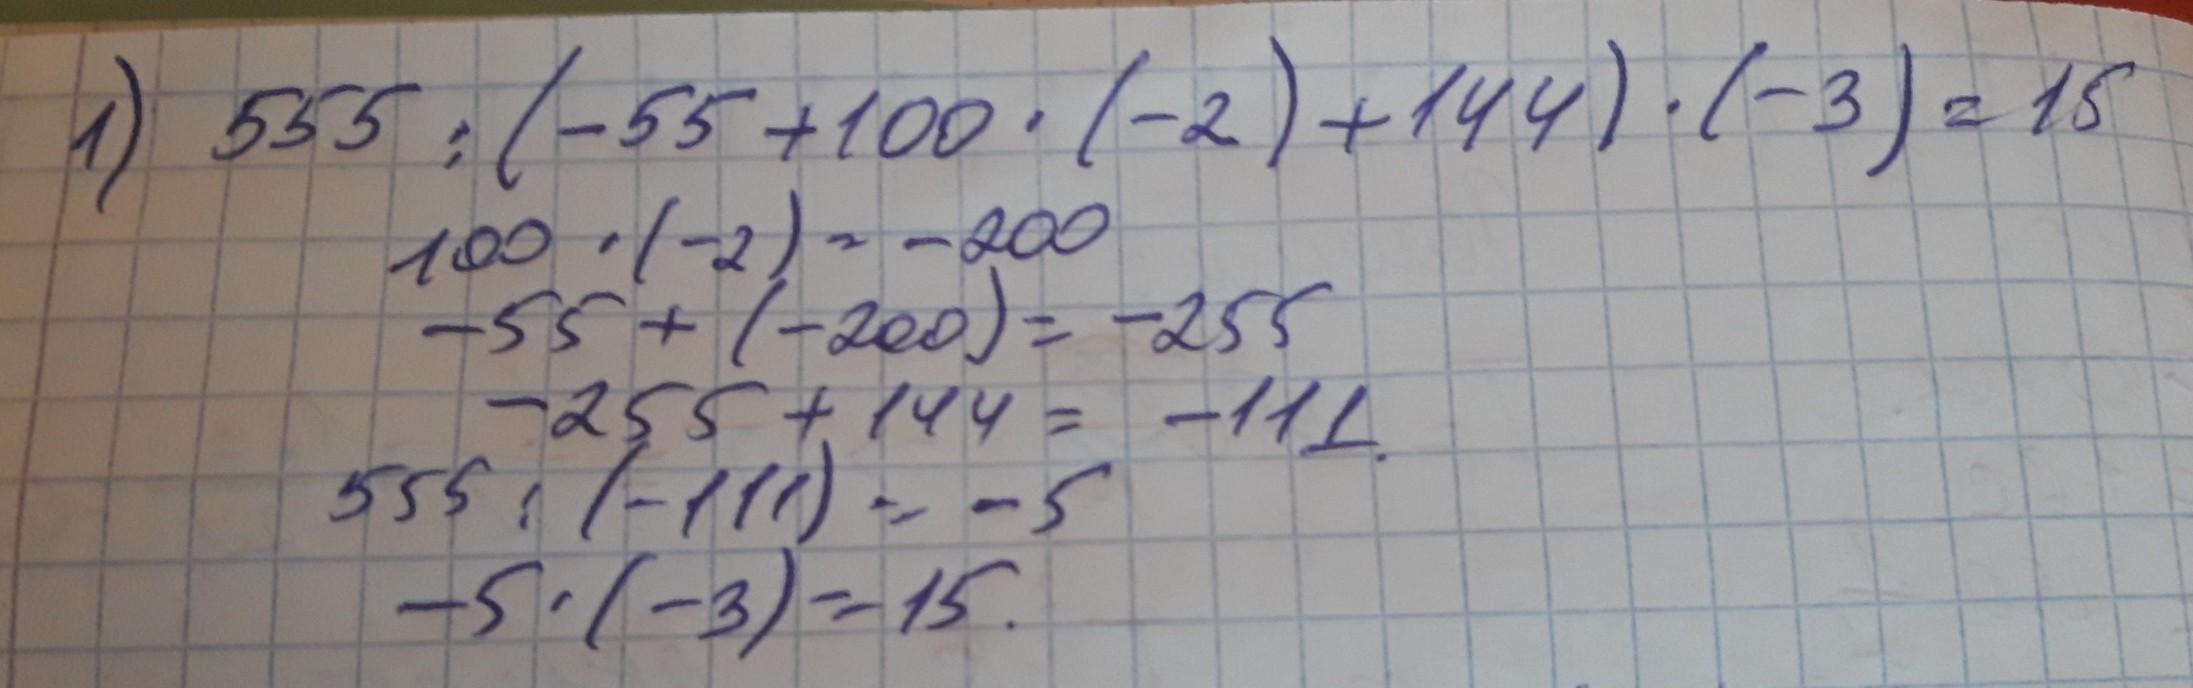 1) 555 : (-55 + 100 · (-2) + 144) · (-3) = 15
100 · (-2) = -200
-55 + (-200) = -255
-255 + 144 = -111.
555 : (-111) = -5
-5 · (-3) = 15.